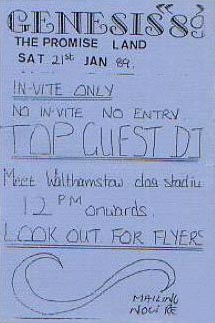 GENESIS "89
THE PROMISE LAND
SAT 21st JAN 89.
IN-VITE ONLY
NO IN-VITE NO ENTRY
TOP GUEST DJ
Meet Walthamstow dog stadiu
12 PM onwards.
LOOK OUT FOR FLYERS
MAILING